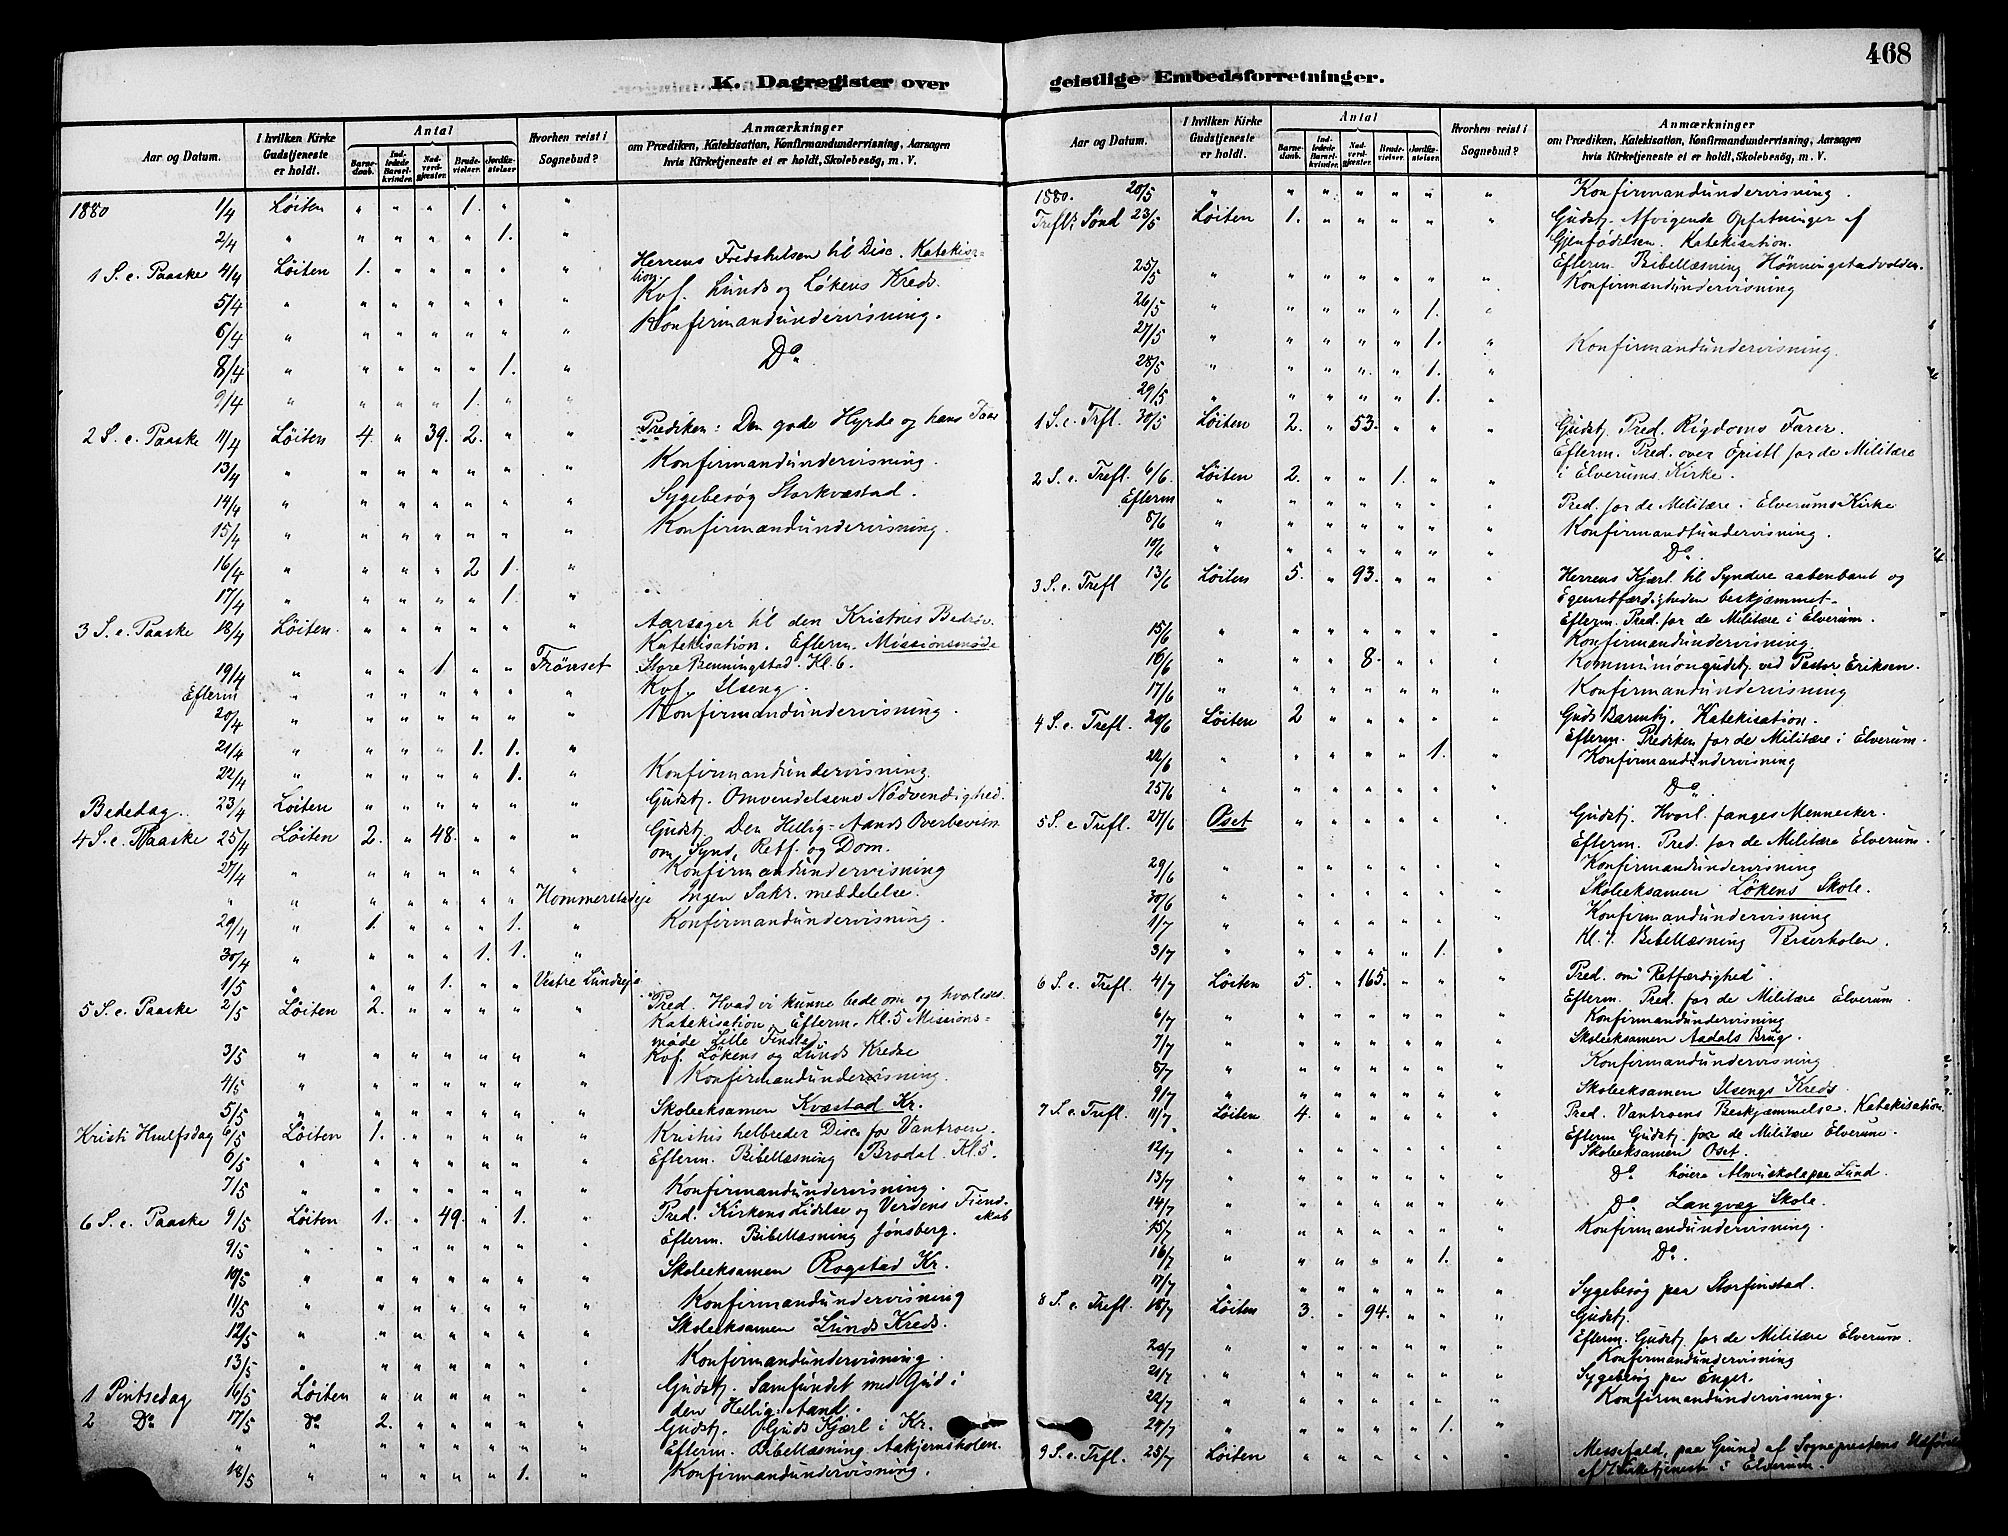 468
K. Dagregister over geistlige Embedsforretninger.
Aar og Datum. I hvilken Kirke Gudstjeneste er holdt. Antal Barnedaab. Indledede Barselkvinder. Nadverdgjæster. Brudevielser. Jordfæstelser. Hvorhen reist i Sognebud? Anmærkninger om Prædiken, Katekisation, Konfirmandundervisning, Aarsagen hvis Kirketjeneste ei er holdt, Skolebesög, m. V.
1880 1/4 Løiten " " " 1. " "
2/4 " " " " " 1. "
1 S. e. Paaske 4/4 Løiten 1. " " " " " Herrens Fredshelsen til Disc. Katekisa-
tion.
5/4 " " " " " " " Kof. Lunds og Løkens Kreds.
6/4 " " " " " " " Konfirmandundervisning.
8/4 " " " " " 1. " Do
9/4 " " " " 1. " "
2 S. e. Paaske 11/4 Løiten 4. " 39. 2. " " Prediken: Den gode Hyrde og hans Faar
13/4 " " " " " " " Konfirmandundervisning.
14/4 " " " " " " " Sygebesøg Storkvæstad.
15/4 " " " " " " " Konfirmandundervisning.
16/4 " " " " 2 1. "
17/4 " " " " " 1. "
3 S. e. Paaske 18/4 Løiten. " " " " " " Aarsager til den Kristnes Bedrøv.
Katekisation. Efterm. Missionsmøde
19/4 " " " 1 " " Frønset Store Benningstad. Kl. 6.
Efterm " " " " " " " Kof. Ilseng.
20/4 " " " " " " " Konfirmandundervisning.
21/4 " " " " 1. 1. "
22/4 " " " " " 1. " Konfirmandundervisning.
Bededag. 23/4 Løiten " " " " " " Gudstj. Omvendelsens Nødvendighed.
4 S. e. Paaske 25/4 Løiten 2. " 48. " " " Gudstj. Den Hellig-Aands Overbevisn
om Synd, Retf. og Dom.
27/4 " " " " " " " Konfirmandundervisning
" " " " " " " Hommerstadeje Ingen Sakr. meddelelse.
29/4 " 1. " " " 1. " Konfirmandundervisning.
30/4 " " " " 1. 1. "
1/5 " " " 1. " " Vestre Lundseje
5 S. e. Paaske 2/5 Løiten 2. " " " " " Pred. Hvad vi kunne bede om og hvorledes.
Katekisation. Efterm. Kl. 5 Missions-
møde Lille Finstad.
3/5 " " " " " " " Kof. Løkens og Lunds Kredse
4/5 " " " " " " " Konfirmandundervisning.
5/5 " " " " " " " Skoleeksamen Kvæstad Kr.
Kristi Himlfsdag 6/5 Løiten 1. " " " " " Kristis helbreder Disc. for Vantroen.
6/5 " " " " " " Efterm. Bibellæsning Brodal. Kl. 5.
7/5 " " " " " " " Konfirmandundervisning.
6 S. e. Paaske 9/5 Løiten 1. " 49. " 1. " Pred. Kirkens Lidelse og Verdens Fiend-
skab
9/5 " " " " " " " Efterm. Bibellæsning Jønsberg.
10/5 " " " " " " " Skoleeksamen Rogstad Kr.
11/5 " " " " " " " Konfirmandundervisning
12/5 " " " " " " " Skoleeksamen Lunds Kreds.
13/5 " " " " " " " Konfirmandundervisning.
1 Pintsedag 16/5 Løiten " " " " " " Gudstj. Samfundet med Gud i
den Hellig-Aand.
2 Do 17/5 Do 2. " " " " " Gudstj. Guds Kjærl i Kr.
" " " " " " " Efterm. Bibellæsning. Aakjernsholen.
18/5 " " " " " 1. " Konfirmandundervisning.
Aar og Datum. I hvilken Kirke Gudstjeneste er holdt. Antal Barnedaab. Indledede Barselkvinder. Nadverdgjæster. Brudevielser. Jordfæstelser. Hvorhen reist i Sognebud? Anmærkninger om Prædiken, Katekisation, Konfirmandundervisning, Aarsagen hvis Kirketjeneste ei er holdt, Skolebesög, m. V.
1880. 20/5 " " " " " " " Konfirmandundervisning.
Trefls Sønd 23/5 Løiten 1. " " " " " Gudstj. Afvigende Opfatninger af
Gjenfødelsen. Katekisation.
Efterm. Bibellæsning Hønningstadvolden.
25/5 " " " " " " " Konfirmandundervisning
26/5 " " " " " 1. "
27/5 " " " " " 1. " Konfirmandundervisning.
28/5 " " " " " 1. "
29/5 " " " " " 1. "
1 S. e. Trfl. 30/5 Løiten 2. " 53. " " " Gudstj. Pred. Rigdoms Farer.
Efterm. Pred. over Epistl for de Militære
i Elverums Kirke.
2 S. e. Trefl. 6/6. Løiten 2. " " 1. " "
Efterm " " " " " " " Pred. for de Militære i Elverums Kirke
8/6 " " " " " " " Konfirmandundervisning.
10/6 " " " " " " " Do
3 S. e. Trefl 13/6 Løiten 5. " 93. " " " Herrens Kjærl. til Syndere aabenbaret og
Egenretfærdigheden beskjæmmet.
Efterm. Pred. for de Militære i Elverum.
15/6 " " " " " " " Konfirmandundervisning
16/6 " " " 8. " " " Kommuniongudstj. ved Pastor Eriksen.
17/6 " " " " " " " Konfirmandundervisning
4 S. e. Trefl. 20/6 Løiten 2 " " " " " Guds Barmhj. Katekisation.
Efterm. Prediken for de Militære i Elverum.
22/6 " " " " " 1. " Konfirmandundervisning
25/6 " " " " " " " Do.
5 S. e Trefl. 27/6 Oset " " " " " " Gudstj. Hvorl. fanges Mennecker.
Efterm. Pred. for de Militære Elverum.
29/6 " " " " " " " Konfirmandundervisning
30/6 " " " " " " " Skoleeksamen Løkens Skole.
1/7 " " " " " " " Konfirmandundervisning
3/7 " " " " " 1. " Kl. 7. Bibellæsning Perserholen.
6 S. e. Trefl. 4/7 Løiten 5. " 165. " " " Pred. om "Retfærdighed".
Efterm. Pred. for de Militære Elverum.
6/7 " " " " " " " Konfirmandundervisning
7/7 " " " " " " " Skoleeksamen Aadals Brug.
8/7 " " " " " " " Konfirmandundervisning
9/7 " " " " " " " Skoleeksamen Ilsengs Kreds.
7 S. e. Trefl. 11/7 Løiten 4. " " " " " Pred. Vantroens Beskjæmmelse. Katekisation
Efterm Gudstj. for de Militære Elverum.
12/7 " " " " " " " Skoleeksamen Oset.
13/7 " " " " " " " Do høiere Almuskole paa Lund.
14/7 " " " " " " " Do Langvæg Skole.
15/7 " " " " " " " Konfirmandundervisning.
16/7 " " " " " 1. " Do.
17/7 " " " " " " " Sygebesøg paa Storfinstad.
8 S. e. Trefl. 18/7 Løiten 3. " 94. " " " Gudstj.
Efterm. Gudstj for de Militære Elverum.
20/7 " " " " " " " Konfirmandundervisning
21/7 " " " " " " " Sygebesøg paa Enger.
22/7 " " " " " " " Konfirmandundervisning.
24/7 " " " " " 1. "
9 S. e. Trfl. 25/7 Løiten " " " " " " Messefald, paa Grund af Sogneprestens Udførelse
af Kirketjeneste i Elverum.